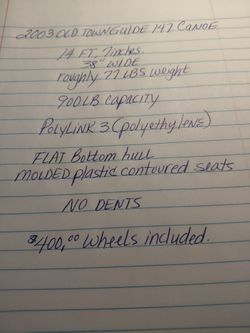 2003 OLD TOWN GUIDE 147 CANOE
14 FT. 7inches.
38" WIDE
roughly 77 LBS weight
900 LB. capacity
POLYLINK 3 (polyethylene)
FLAT Bottom hull
MOLDED plastic contoured seats
NO DENTS
$400,00 Wheels included.